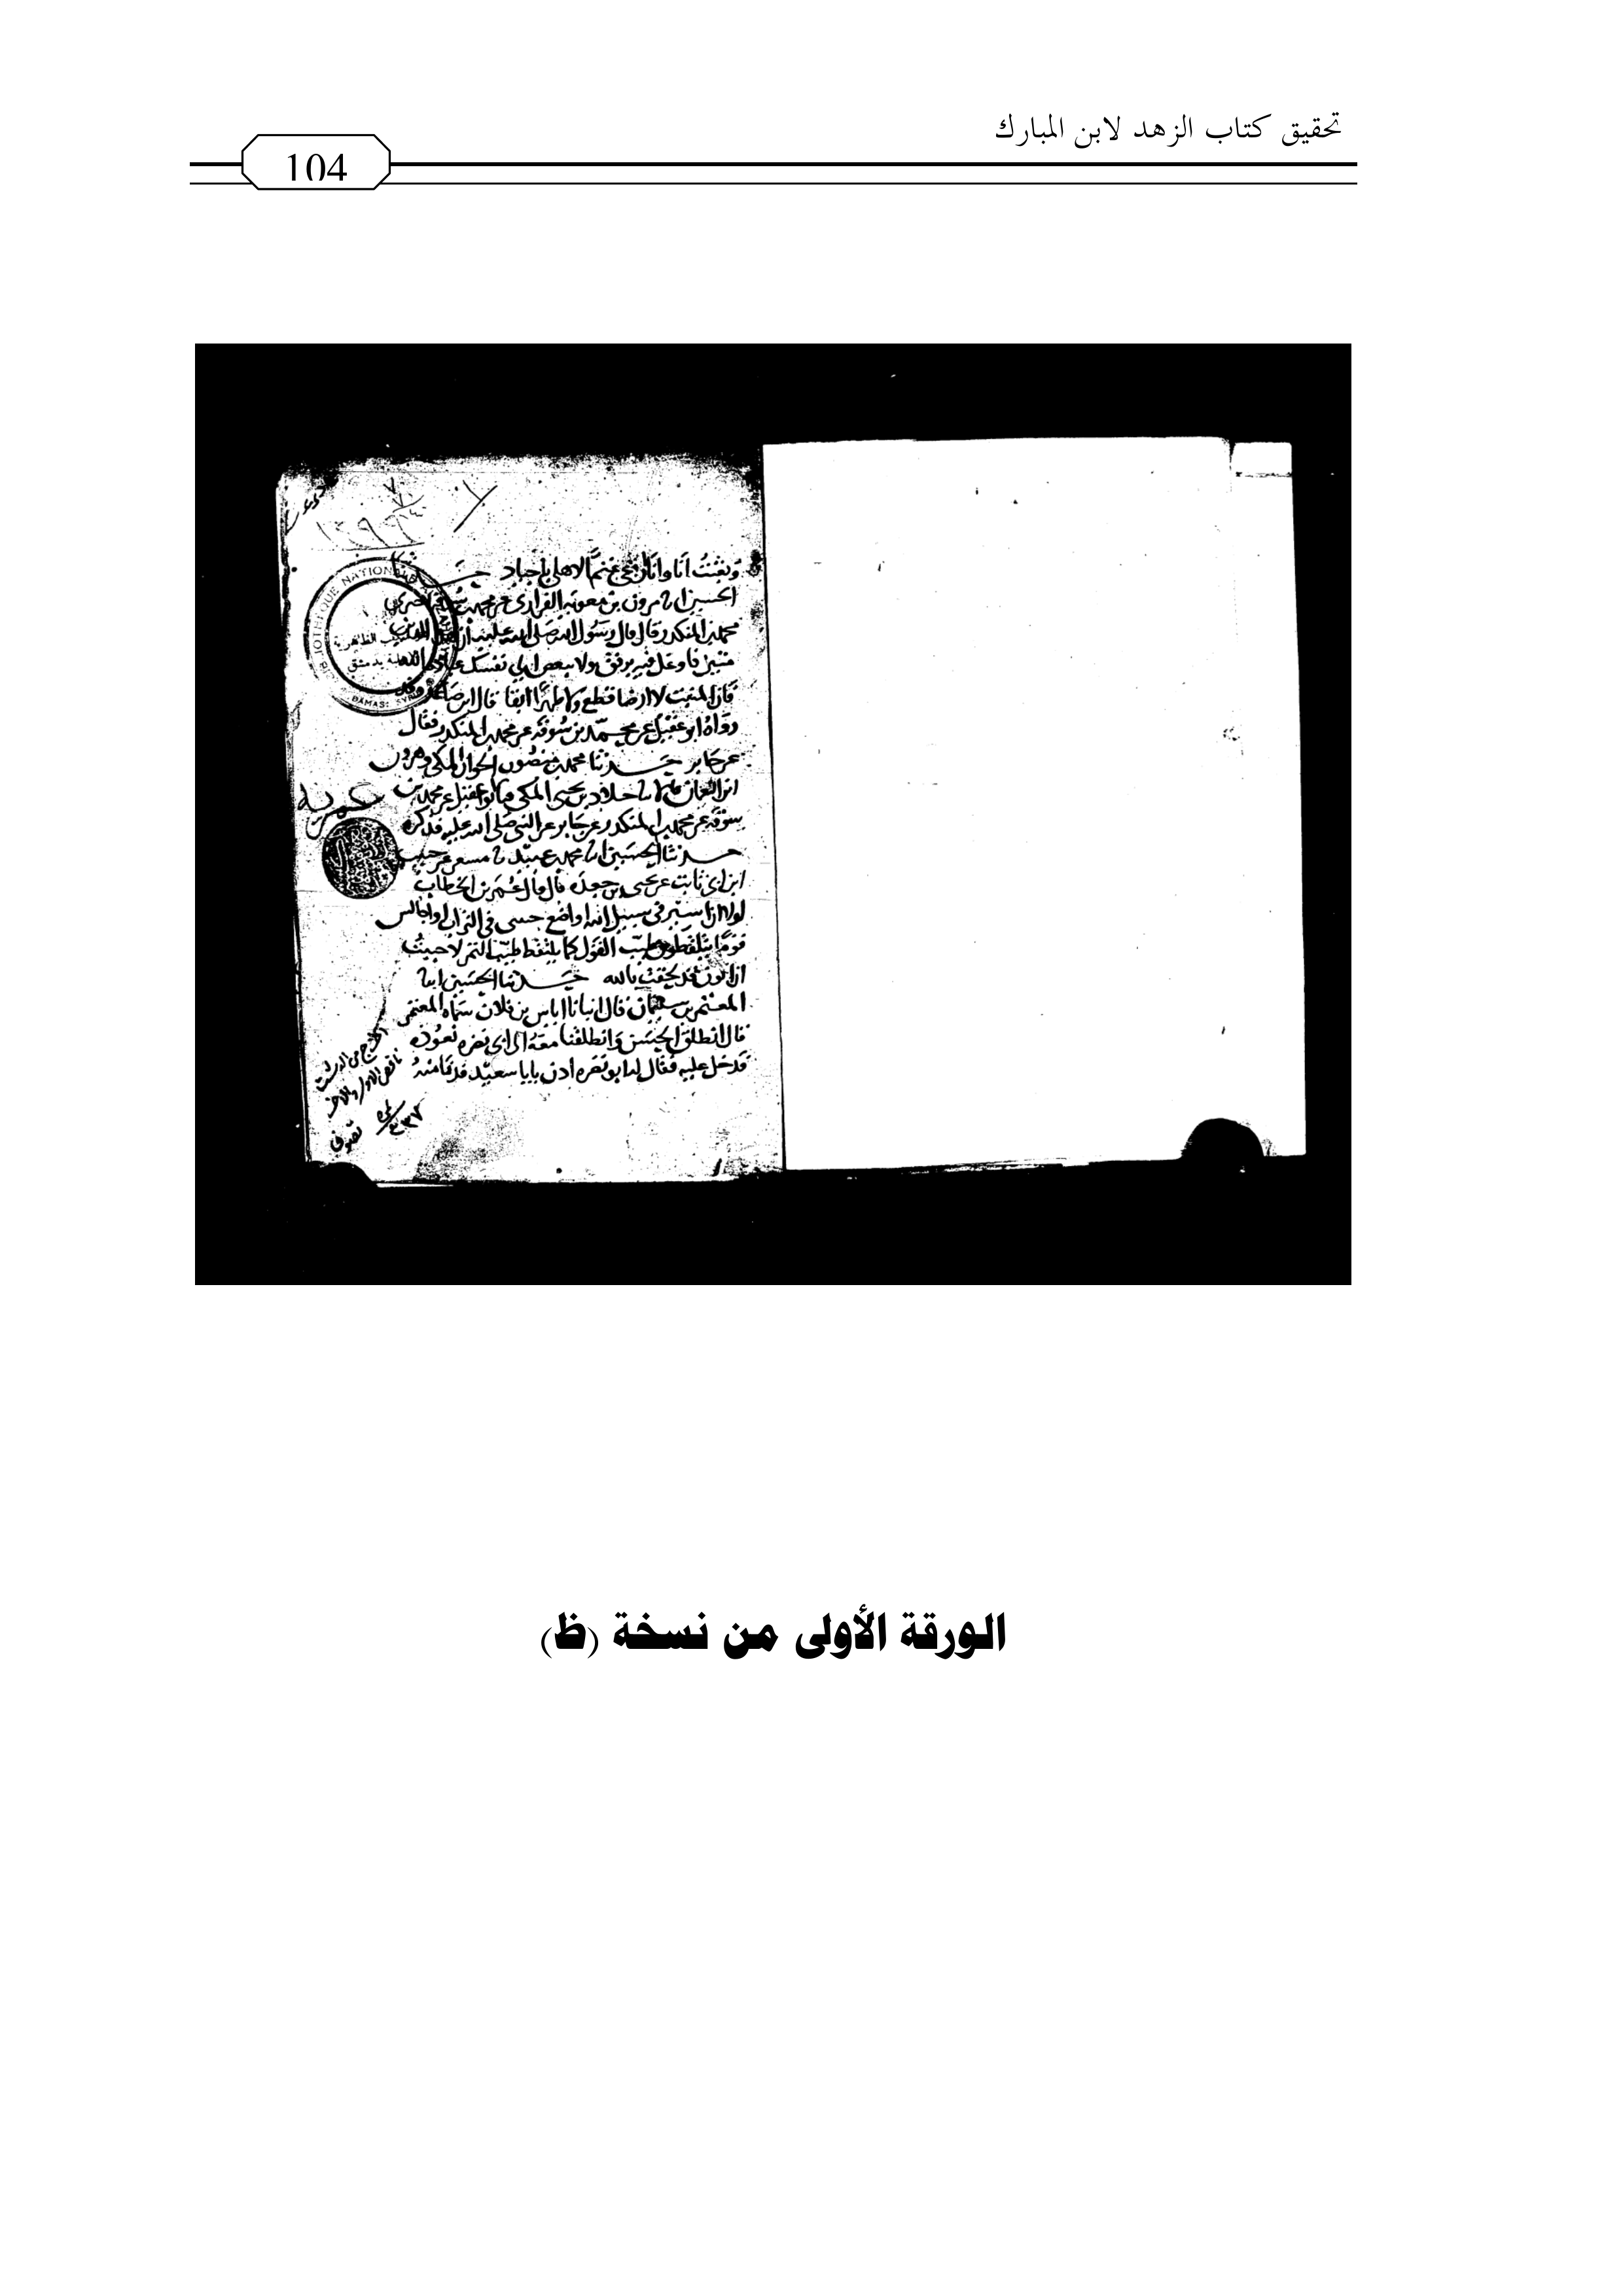 تحقيق كتاب الزهد لابن المبارك
104
وبعثت أنا وأنا أرعى غنما لأهلي بأجياد حدثنا
الحسين انا مروان بن معوية الفزاري عن محمد بن سوقة أخبرني
محمد بن المنكدر قال قال رسول الله صلى الله عليه إن هذا الدين
متين فاوغل فيه برفق ولا تبغض إلى نفسك عبادة الله
فإن المنبت لا ارضا قطع ولا ظهرا ابقا قال ابن صاعد وقد
رواه ابو عقيل عن محمد بن سوقة عن محمد بن المنكدر فقال
عن جابر حدثنا محمد بن منصور الجواز المكي وهرون
خلاد بن يحيى المكي ابو عقيل عن محمد بن
سوقة عن محمد بن المنكدر عن جابر عن النبي صلى الله عليه فذكره
حدثنا الحسين انا محمد بن عبيد نا مسعر عن حبيب
ابن ابي ثابت عن يحيى بن جعدة قال قال عمر بن الخطاب
لولا ان اسير في سبيل الله او اضع جبيني في التراب او اجالس
قوما يلتقطون طيب القول كما يلتقط طيب التمر لاحببت
ان اكون قد لحقت بالله حدثنا الحسين انا
المعتمر بن سليمان قال انبانا اياس بن فلان سماه المعتمر
قال انطلق الحسن وانطلقنا معه الى ابي نضره نعوده
فدخل عليه فقال له ابو نضره ادن يابا سعيد فدنا منه
BIBLIOTHEQUE NATIONALE
الظاهرية
الأهلية بدمشق
DAMAS: SYRIE
عمرية
من الدشت
ناقص الاول والاخر
تصوف
الورقة الأولى من نسخة (ظ)